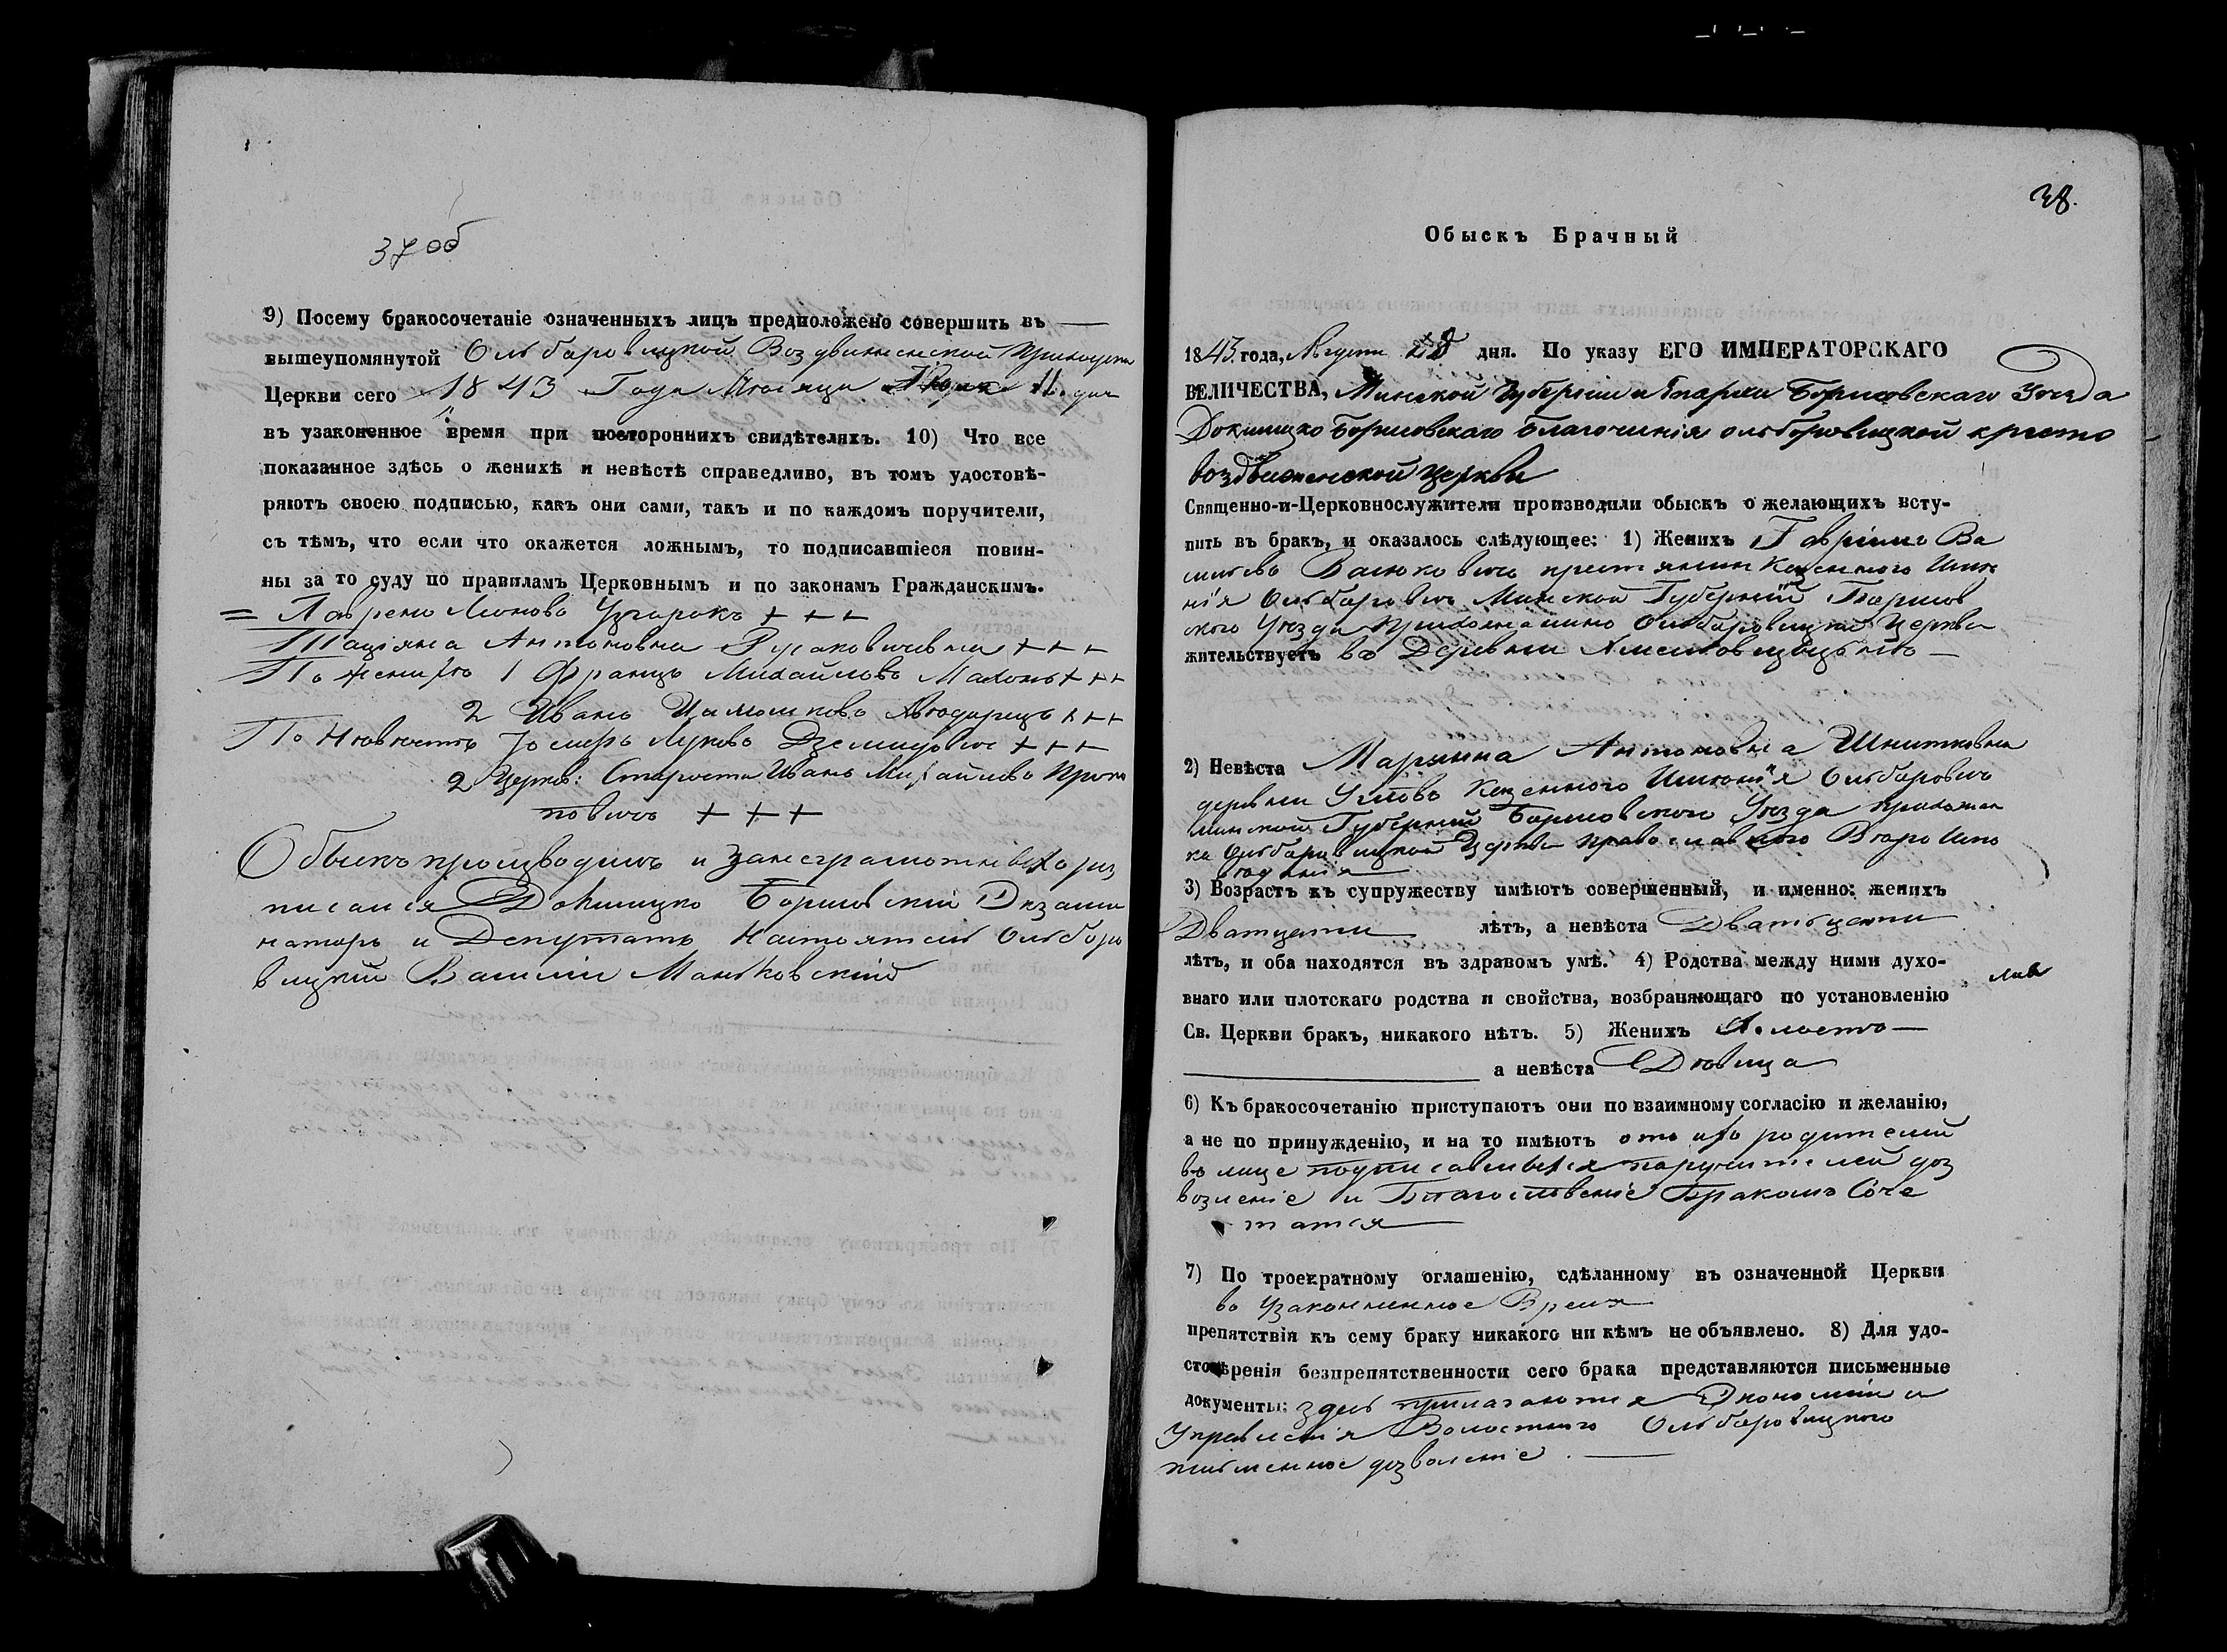 37 об
9) Посему бракосочетаніе означенныхъ лицъ предположено совершить въ
вышеупомянутой Ольборовицкой Воздвиженской
Церкви сего 1843 Года Месяца 11. дня
въ узаконенное время при постороннихъ свидѣтеляхъ. 10) Что все
показанное здѣсь о женихѣ и невѣстѣ справедливо, въ томъ удостовѣ-
ряютъ своею подписью, какъ они сами, такъ и по каждомъ поручители,
съ тѣмъ, что если что окажется ложнымъ, то подписавшіеся повин-
ны за то суду по правиламъ Церковнымъ и по законамъ Гражданскимъ.
= +++
Антоновна +++
По женихѣ 1 Францъ Михайловъ +++
2 Иванъ +++
По Невѣстѣ +++
2 Церков: Староста Иванъ Михайловъ Проко
повичъ +++
Обыскъ производилъ и за неграмотныхъ роз
писался Докшицко Борисовскій Экзами
наторъ и Депутатъ Настоятель Ольборо
вицкій Василій Маньковскій
38.
Обыскъ Брачный
1843 года, Августа 28 дня. По указу ЕГО ИМПЕРАТОРСКАГО
ВЕЛИЧЕСТВА, Минской Губерніи и Епархіи Борисовскаго Уезда
Докшицко Борисовскаго благочинія ольборовицкой кресто
воздвиженской церкви
Священно-и-Церковнослужители производили обыскъ о желающихъ всту-
пить въ бракъ, и оказалось слѣдующее: 1) Женихъ Гавріилъ Ва
сильевъ Васюковичъ крестьянинъ Казенного Име
нія Ольборовичъ Минской Губерніи Борисов
ского Уезда прихожанинъ Ольборовицкой Церкви
жительствуетъ въ Деревни
2) Невѣста Маріянна Антоновна Шнитковна
деревни Казенного Именія Ольборовичъ
Минской Губерніи Борисовского Уезда прихожан
ка Ольборовицкой Церкви православного Вероиспо
веданія
3) Возрастъ къ супружеству имѣютъ совершенный, и именно: женихъ
Дватцати лѣтъ, а невѣста Дватьцати
лѣтъ, и оба находятся въ здравомъ умѣ. 4) Родства между ними духо-
внаго или плотскаго родства и свойства, возбраняющаго по установленію
Св. Церкви бракъ, никакого нѣтъ. 5) Женихъ Холостъ
а невѣста Девица
6) Къ бракосочетанію приступаютъ они по взаимному согласію и желанію,
а не по принужденію, и на то имѣютъ отъ ихъ родителей
въ лице подписавшыхся поручителей доз
воленіе и Благословеніе Бракомъ Соче
татся
7) По троекратному оглашенію, сдѣланному въ означенной Церкви
во Узаконенное Время
препятствія къ сему браку никакого ни кѣмъ не объявлено. 8) Для удо-
стовѣренія безпрепятственности сего брака представляются письменные
документы: здесь прилагаются Экономіи и
Управленія Волостного Ольборовицкого
письменное дозволеніе.